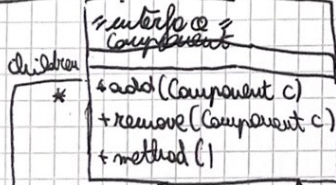 "interface"
Component
children
*
+ add(Component c)
+ remove(Component c)
+ method()